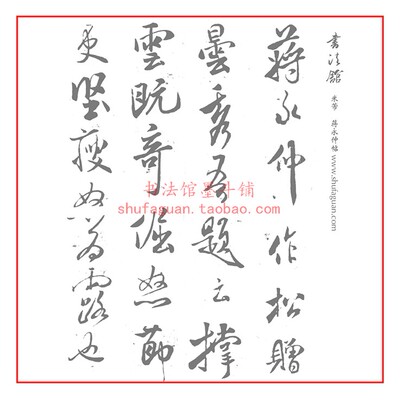 書法館
米芾 蒋永仲帖 www.shufaguan.com
蒋永仲作松贈
曇秀吾題云撑
雲既奇倔怒節
更堅瘦為露也
书法馆墨斗铺
shufaguan.taobao.com